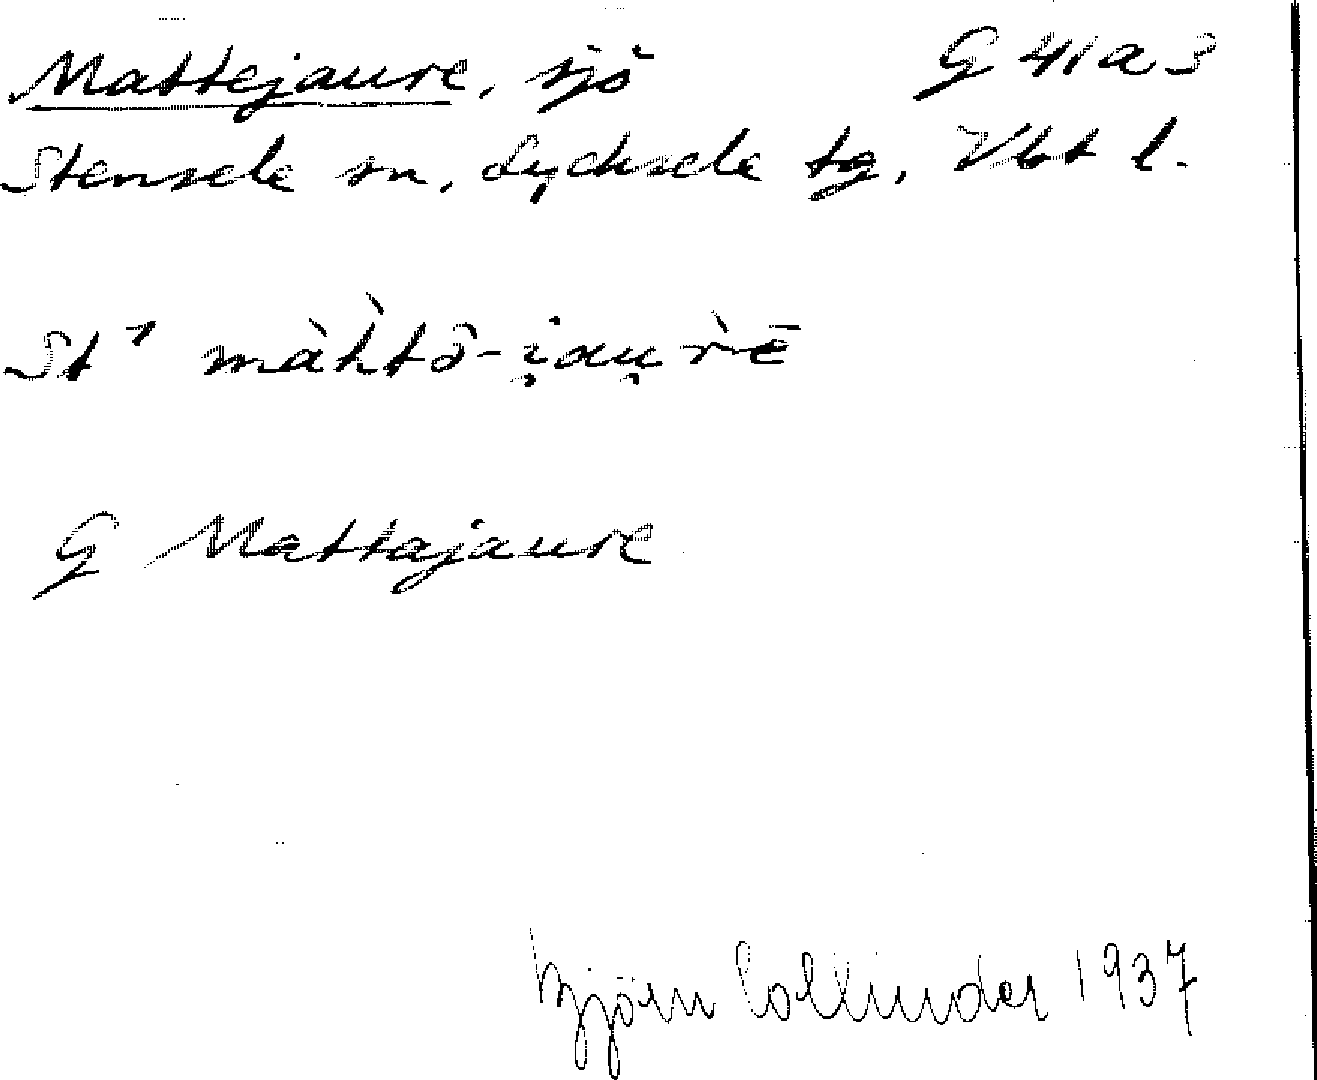 Mattejaure, sjö G 41a3
Stensele sn, Lycksele tg, Vbt l.
St¹ màh̀tō-i̯au̯r̀ē
G Mattajaure
Björn Collinder 1937